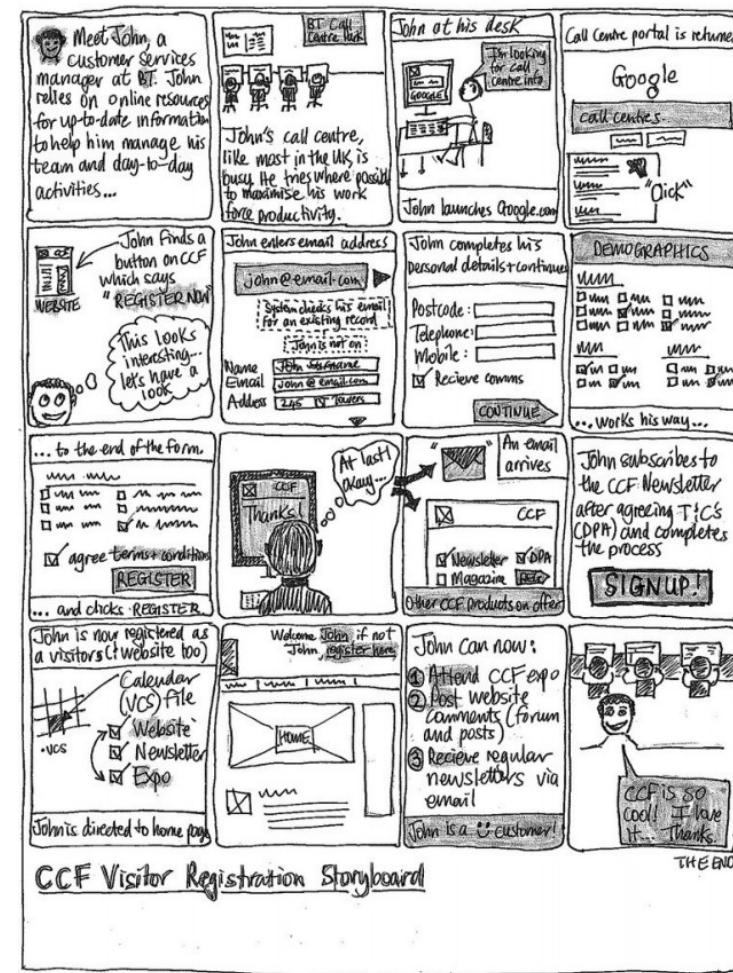 Meet John, a
customer services
manager at BT. John
relies on online resources
for up-to-date information
to help him manage his
team and day-to-day
activities...
BT Call
Centre Park
John's call centre,
like most in the UK, is
busy. He tries where possible
to maximise his work
force productivity.
John at his desk
I'm looking
for call
centre info
GOOGLE
John launches Google.com
Call Centre portal is returned
Google
call centres..
"Click"
CCF
WEBSITE
John finds a
button on CCF
which says
"REGISTER NOW"
This looks
interesting...
lets have a
look
John enters email address
john@email.com
System checks his email
for an existing record
John is not on
Name John Surname
Email john@email.com
Address 245 Towers
John completes his
personal details + continues
Postcode:
Telephone:
Mobile:
Recieve comms
CONTINUE
DEMOGRAPHICS
... works his way...
... to the end of the form.
agree terms + conditions
REGISTER
... and clicks REGISTER.
CCF
Thanks!
At last!
okay...
An email
arrives
CCF
Newsletter DPA
Magazine
Other CCF products on offer
John subscribes to
the CCF Newsletter
after agreeing T+C's
(DPA) and completes
the process
SIGNUP!
John is now registered as
a visitors (+ website too)
Calendar
(VCS) file
.VCS
Website
Newsletter
Expo
John is directed to home page
Welcome John if not
John, register here
HOME
John can now:
1 Attend CCF expo
2 Post website
comments (forum
and posts)
3 Recieve regular
newsletters via
email
John is a customer!
CCF is so
cool! I love
it... Thanks.
THE END
CCF Visitor Registration Storyboard